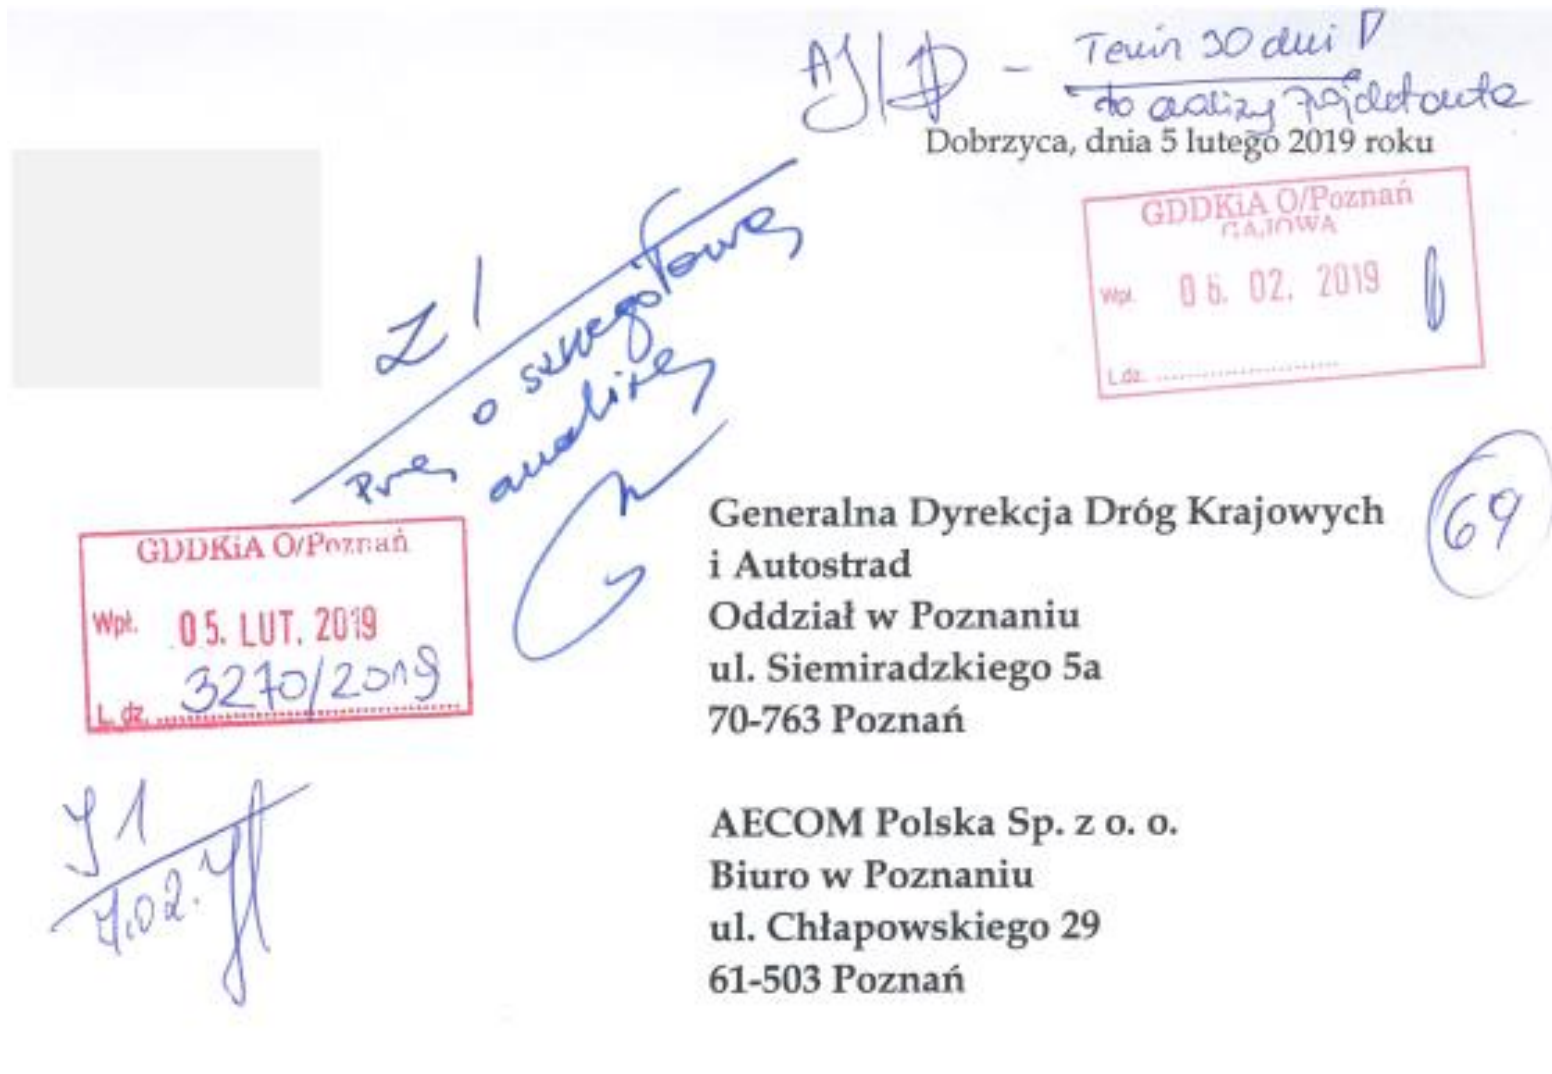 Termin 30 dni
do analizy projektanta
Dobrzyca, dnia 5 lutego 2019 roku
GDDKiA O/Poznań
GAJOWA
Wpł. 06. 02. 2019
L.dz. ........................
Z1
Proszę o szczegółową
analizę
69
GDDKiA O/Poznań
Wpł. 05. LUT. 2019
L. dz. 3270/2019
Generalna Dyrekcja Dróg Krajowych
i Autostrad
Oddział w Poznaniu
ul. Siemiradzkiego 5a
70-763 Poznań
AECOM Polska Sp. z o. o.
Biuro w Poznaniu
ul. Chłapowskiego 29
61-503 Poznań